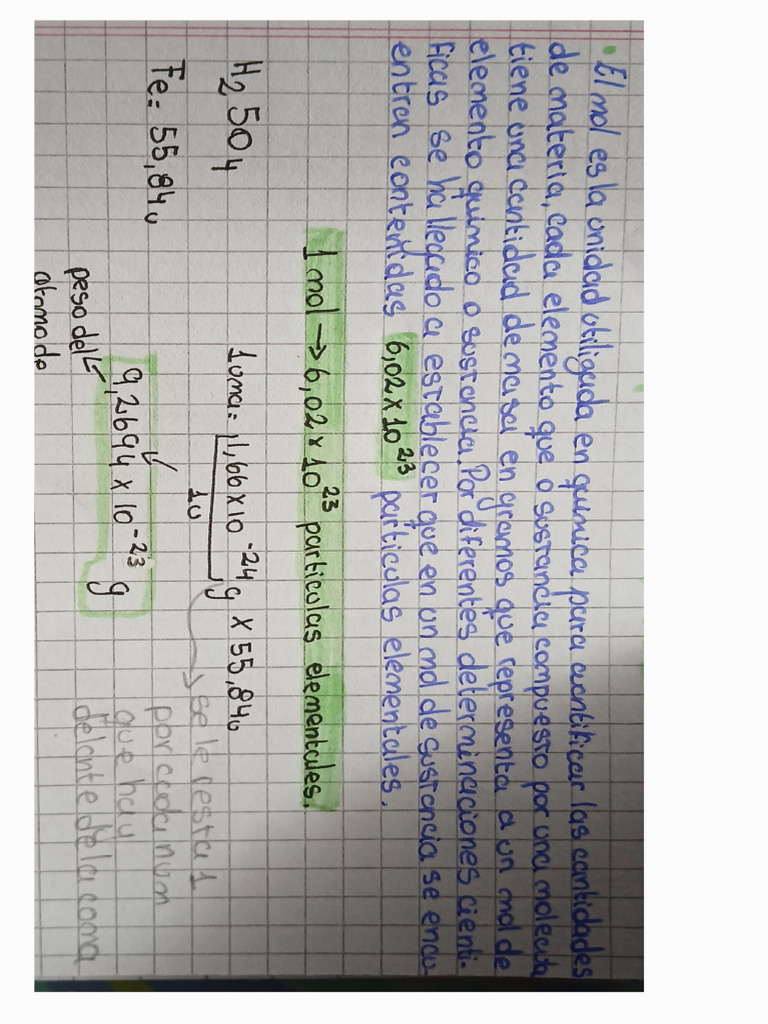 • El mol es la unidad utiligada en quimica para cuantificar las cantidades
de materia, cada elemento que o sustancia compuesto por una molecula
tiene una cantidad de masa en gramos que representa a un mol de
elemento quimico o sustancia. Por diferentes determinaciones cienti-
ficas se ha llegado a establecer que en un mol de sustancia se encu
entran contenidas 6,02 x 10²³ particulas elementales.
1 mol → 6,02 x 10²³ particulas elementales.
H₂SO₄
1 uma = 1,66 x 10⁻²⁴ g x 55,84u
1u
Fe = 55,84u
9,2694 x 10⁻²³ g
peso del
atomo de
se le resta 1
por cada num
que hay
delante de la coma